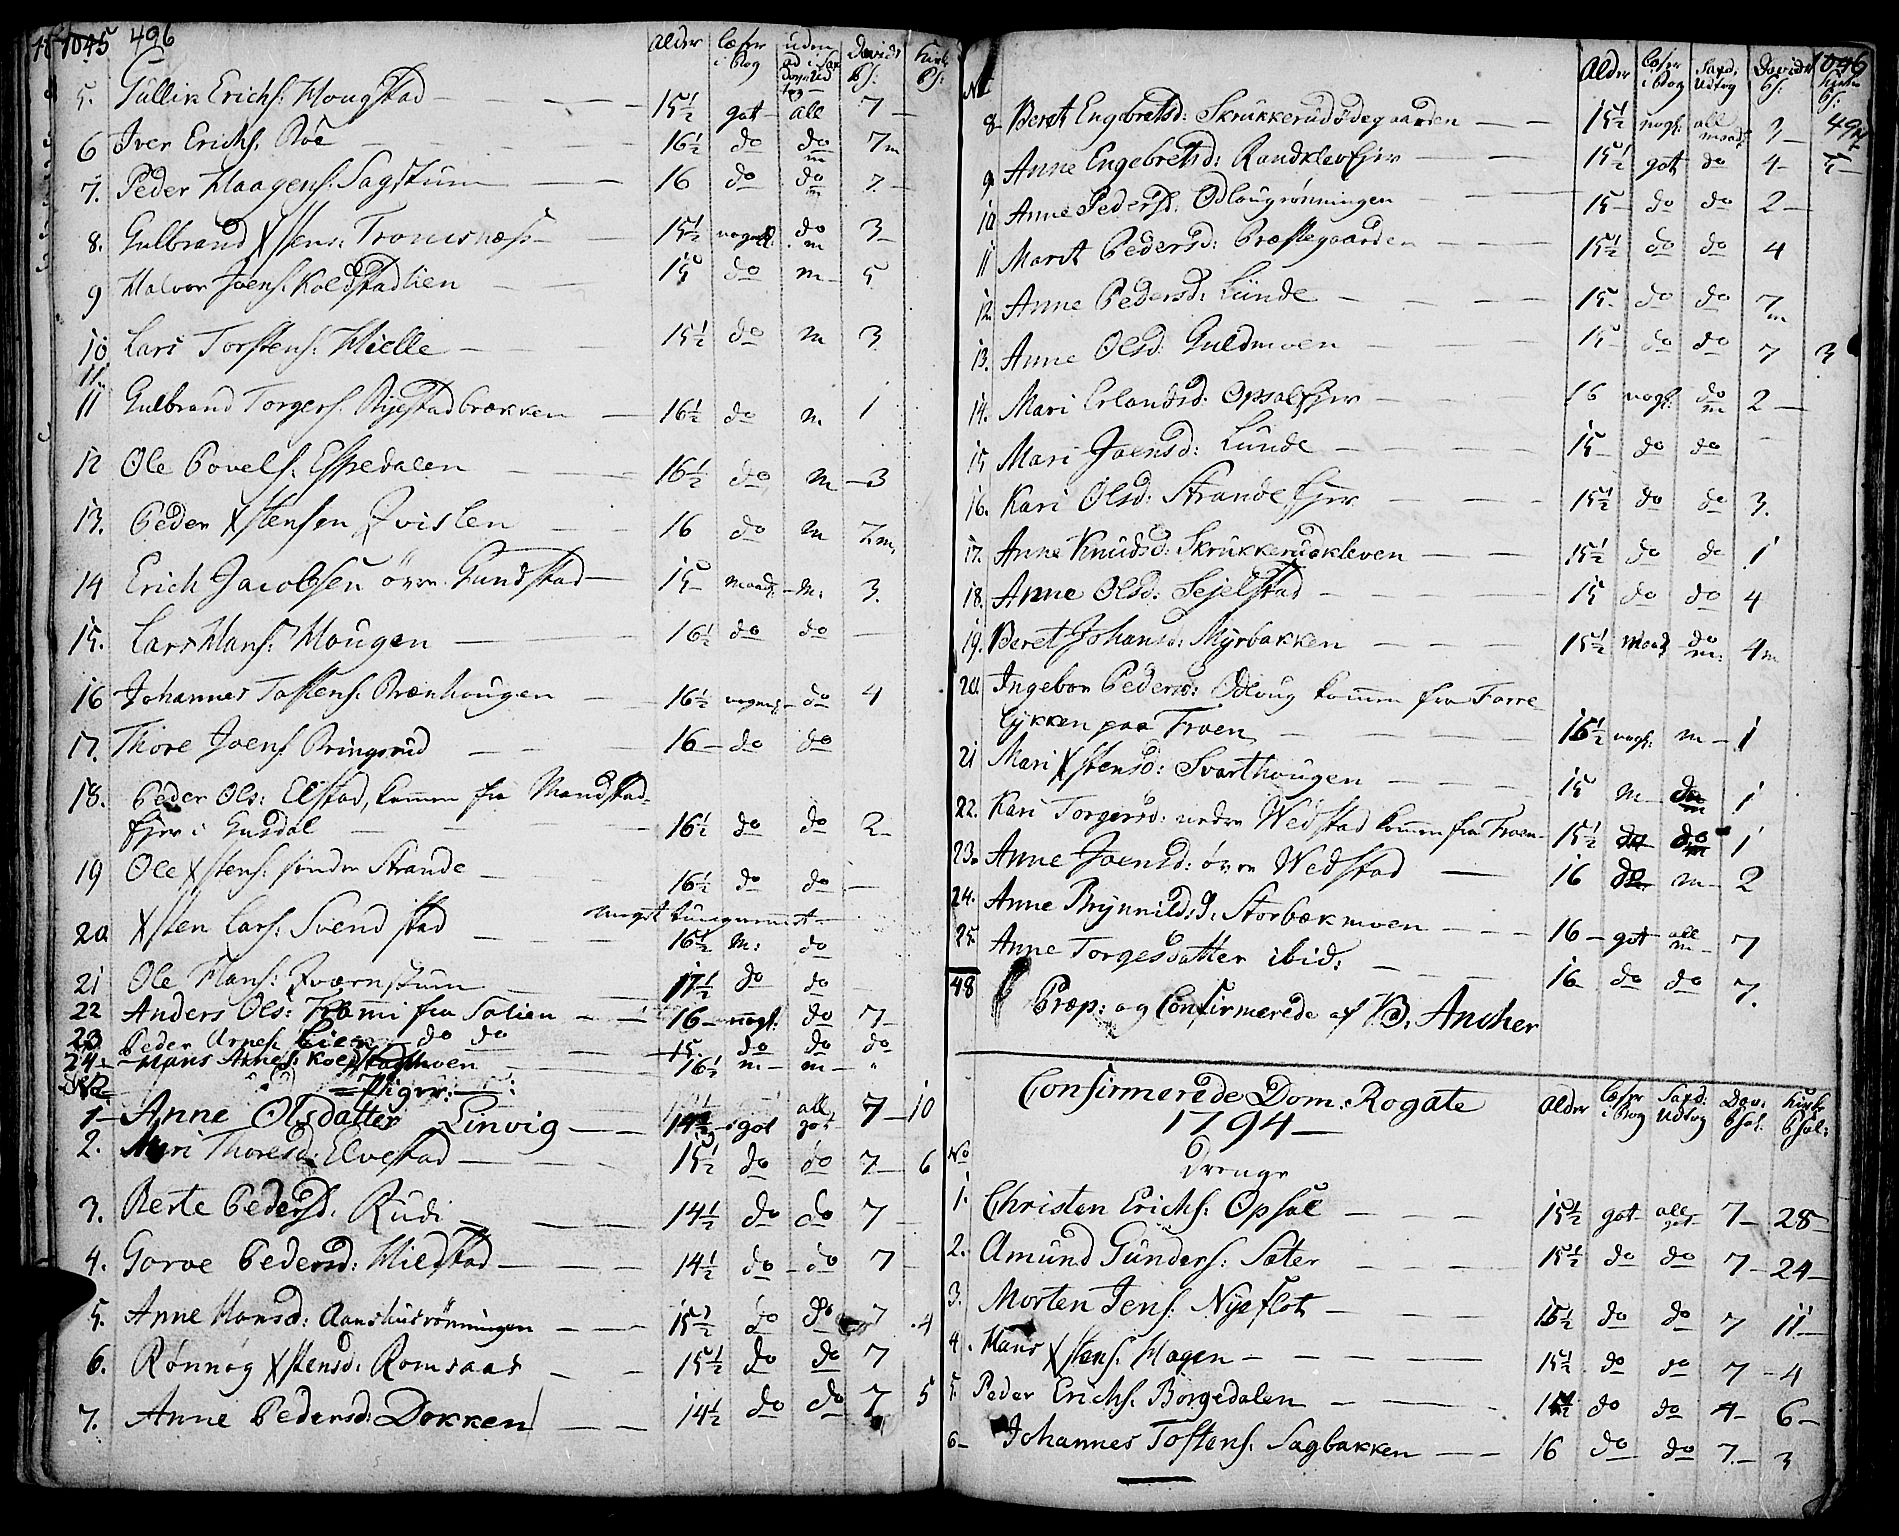 1045 496
Alder læser i Bog uden ad i Sax: Davids Ps: Kirke Ps:
5. Gullik Erichs: Hougstad 15½ got all 7
6 Iver Erichs: Roe 16½ do do m 7m
7. Peder Haagens: Sagstum 16 do do m 7
8. Gulbrand Xstens: Tromsnæss 15½ do m 3
9 Halvor Joens: Koldstadlien 15 do m 5
10 Lars Torstens: Hielle 15½ do m 3
11.
11 Gulbrand Torgers: Ryestadbrækken 16½ do m 1
12 Ole Povels: Espedalen 16½ do m 3
13. Peder Xstensen Qvislen 16 do m 7m
14 Erich Jacobsen övre Gundstad 15 maad: m: 3.
15. Lars Hans: Hougen 16½ do do
16 Johannes Tostens: Brænhougen 16½ do 4
17. Thore Joens Bringsrud 16 do do
18. Peder Ols: Elstad, kommen fra Mandstad-
Ejer i Gusdal 16½ do do 2
19 Ole Xstens: søndre Strande 16½ do do
20 Xsten Lars: Svendstad meget tungnemmet 16½ m: do
21 Ole Hans: Qværnstum 17½ do do
22 Anders Ols: Tromi fra Solien 16 nogl: do 7
23 Peder Arnes: Lien do do 15 do do do
24 Hans Arnes: Kolstadmoen 16½ m m
No Piger:
1 Anne Olsdatter Linvig 14½ got all got 7 10
2. Mari Thoresd: Elvestad 15½ do do 7 6
3. Berte Pedersd: Rudi 14½ do do 7
4. Goroe Pedersd: Miedstad 14½ do do 7
5. Anne Hansd: Aanshusrönningen 15½ do do 7 4
6. Rønnög Xstensd: Romsaas 15½ do do 7
7. Anne Pedersd: Dokken 14½ do do 7 5
1046
No Alder læser i Bog Saxd: Udtog Davids Ps: Kirke Ps:
497
8 Beret Engebretsd: Skrukkerudödegaarden 15½ nogl: all maad: 3
9 Anne Engebretsd: Randklev Ejer 15½ got do 4 5
10 Anne Pedersd: Odlougrønningen 15 do do 2
11 Marit Pedersd: Præstegaarden 15½ do do 4
12. Anne Pedersd: Lunde 15 do do 7m
13. Anne Olsd: Guldmoen 15 do do 7 3
14. Mari Erlandsd: Opsal Ejer 16 nogl: do m 2
15 Mari Joensd: Lunde 15 do do
16. Kari Olsd: Strande Ejer 15½ do do 3.
17. Anne Knudsd: Skrukkerudkleven 15½ do do 1
18. Anne Olsd: Sejelstad 15 do do 4
19. Beret Johansd: Myrbakken 15½ Maad do m: 4m
20. Ingebor Pedersd: Odloug kommen fra Forre
lykken paa Troen 16½ nogl: m 1
21 Mari Xstensd: Svarthougen 15 m 1
22. Kari Torgersd: nedre Wedstad kommen fra Froen 15½ do do 1
23. Anne Joensd: övre Wedstad 16 do m 2
24. Anne Brynnildsd: Storbækmoen 16 got all m 7
25. Anne Torgesdatter ibid: 16 do do 7.
48
Præp: og Confirmerede af B: Ancher
Confirmerede Dom: Rogate
1794
Alder læser i Bog Saxd: Udtog Dav: Psal: Kirke Psal:
No Drenge
1. Christen Erichs: Opsal 15½ got all got 7 28
2. Amund Gunders: Sæter 15½ do do 7 24
3. Morten Jens: Nyeflot 15½ do do 7 11
4. Hans Xstens: Hagen 15½ do do 7 4
5. Peder Erichs: Borgedalen do do 4 6
6 Johannes Tostens: Sagbakken 16 do do 7. 3